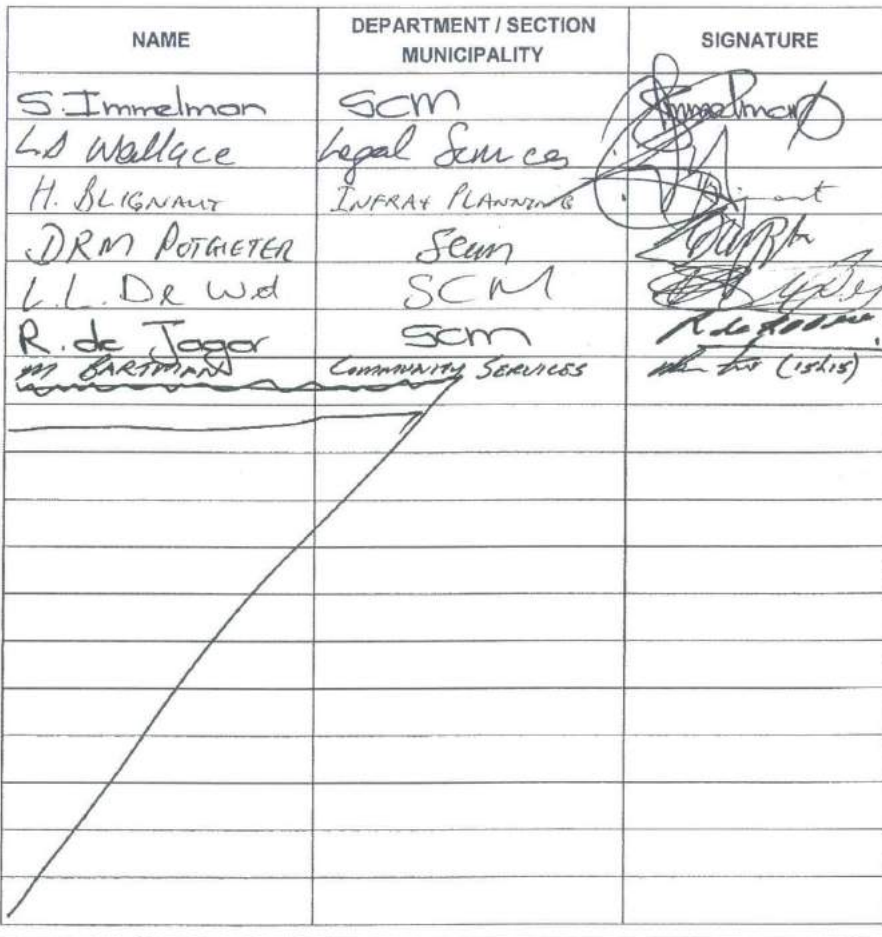 NAME DEPARTMENT / SECTION MUNICIPALITY SIGNATURE
S. Immelman SCM Immelman
L.D Wallace Legal Services
H. BLIGNAUT INFRA & PLANNING
DRM POTGIETER SCM
L.L. De Wd SCM
R. de Jager SCM R de
M BARTMAN COMMUNITY SERVICES